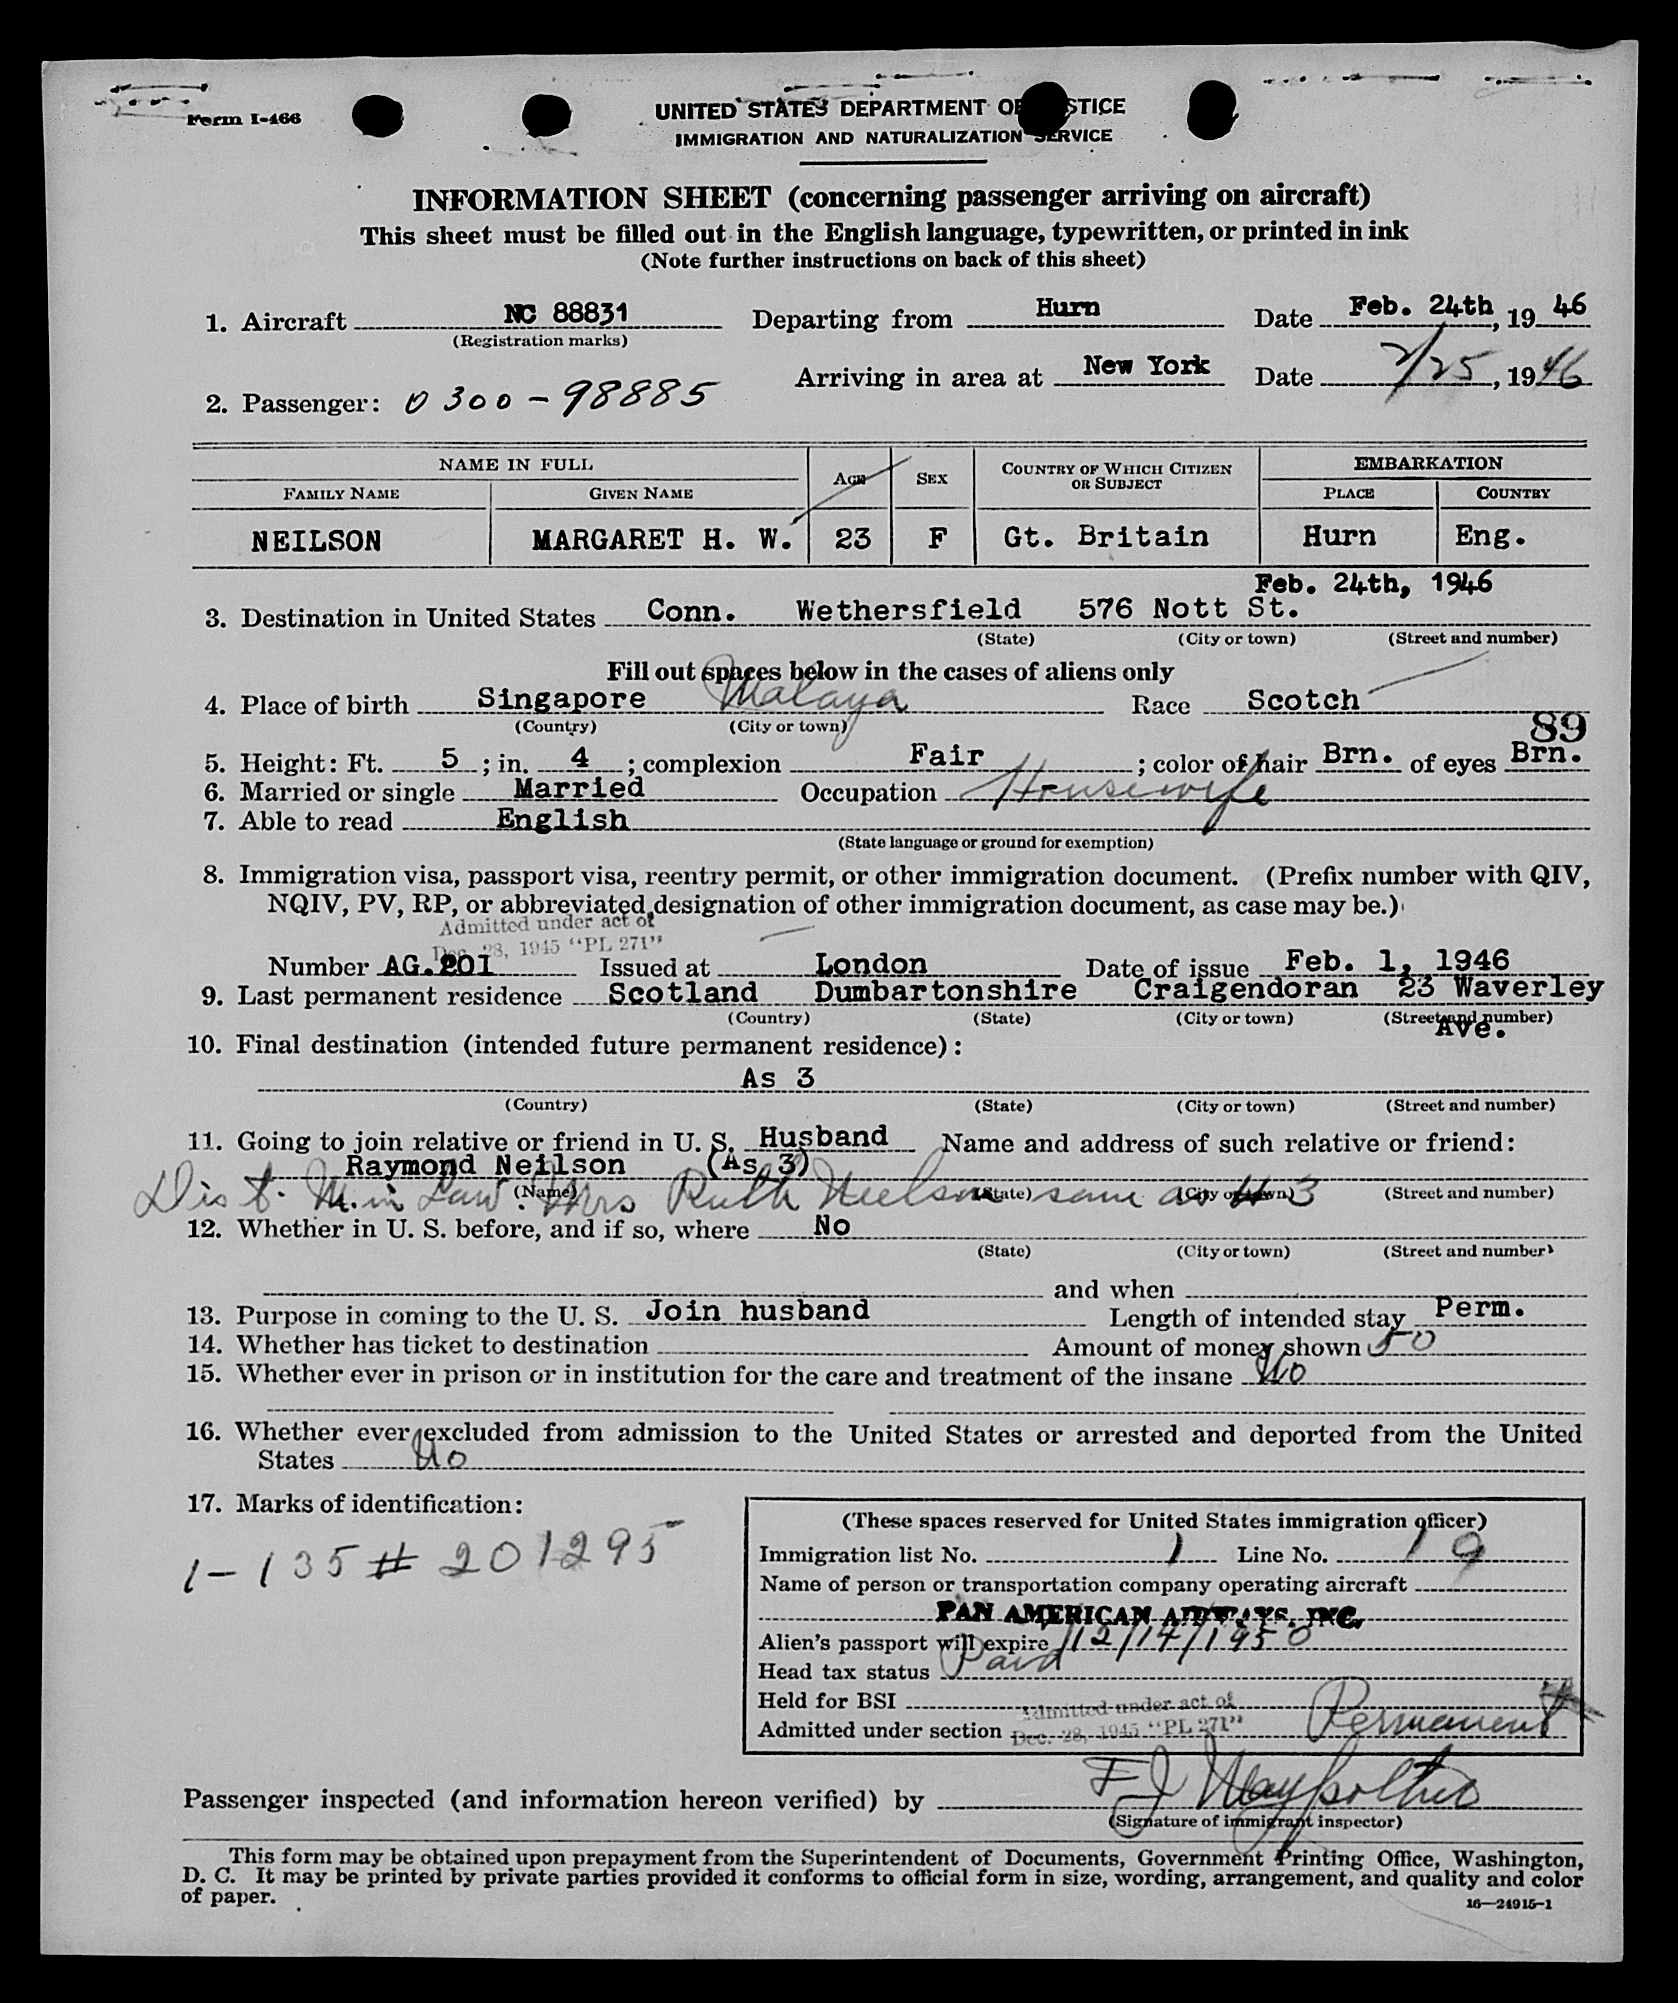 Form I-466
UNITED STATES DEPARTMENT OF JUSTICE
IMMIGRATION AND NATURALIZATION SERVICE
INFORMATION SHEET (concerning passenger arriving on aircraft)
This sheet must be filled out in the English language, typewritten, or printed in ink
(Note further instructions on back of this sheet)
1. Aircraft NC 88831 Departing from Hurn Date Feb. 24th, 19 46
(Registration marks)
Arriving in area at New York Date 2/25, 19 46
2. Passenger: 0300-98885
NAME IN FULL EMBARKATION
FAMILY NAME GIVEN NAME AGE SEX COUNTRY OF WHICH CITIZEN OR SUBJECT PLACE COUNTRY
NEILSON MARGARET H. W. 23 F Gt. Britain Hurn Eng.
Feb. 24th, 1946
3. Destination in United States Conn. Wethersfield 576 Nott St.
(State) (City or town) (Street and number)
Fill out spaces below in the cases of aliens only
4. Place of birth Singapore Malaya Race Scotch
(Country) (City or town)
89
5. Height: Ft. 5; in. 4; complexion Fair; color of hair Brn. of eyes Brn.
6. Married or single Married Occupation Housewife
7. Able to read English
(State language or ground for exemption)
8. Immigration visa, passport visa, reentry permit, or other immigration document. (Prefix number with QIV,
NQIV, PV, RP, or abbreviated designation of other immigration document, as case may be.)
Admitted under act of
Dec. 28, 1945 "PL 271"
Number AG.201 Issued at London Date of issue Feb. 1, 1946
9. Last permanent residence Scotland Dumbartonshire Craigendoran 23 Waverley
(Country) (State) (City or town) (Street and number)
Ave.
10. Final destination (intended future permanent residence):
As 3
(Country) (State) (City or town) (Street and number)
11. Going to join relative or friend in U. S. Husband Name and address of such relative or friend:
Raymond Neilson (As 3)
(Name) (State) (City or town) (Street and number)
Dist. M. in Law. Mrs Ruth Neilson same as # 3
12. Whether in U. S. before, and if so, where No
(State) (City or town) (Street and number)
and when
13. Purpose in coming to the U. S. Join husband Length of intended stay Perm.
14. Whether has ticket to destination Amount of money shown 50
15. Whether ever in prison or in institution for the care and treatment of the insane No
16. Whether ever excluded from admission to the United States or arrested and deported from the United
States No
17. Marks of identification:
1-135 # 201295
(These spaces reserved for United States immigration officer)
Immigration list No. 1 Line No. 19
Name of person or transportation company operating aircraft
PAN AMERICAN AIRWAYS, INC.
Alien's passport will expire 12/14/1950
Head tax status Paid
Held for BSI
Admitted under act of
Admitted under section Dec. 28, 1945 "PL 271" Permanent
Passenger inspected (and information hereon verified) by F J
(Signature of immigrant inspector)
This form may be obtained upon prepayment from the Superintendent of Documents, Government Printing Office, Washington,
D. C. It may be printed by private parties provided it conforms to official form in size, wording, arrangement, and quality and color
of paper.
16—24915-1